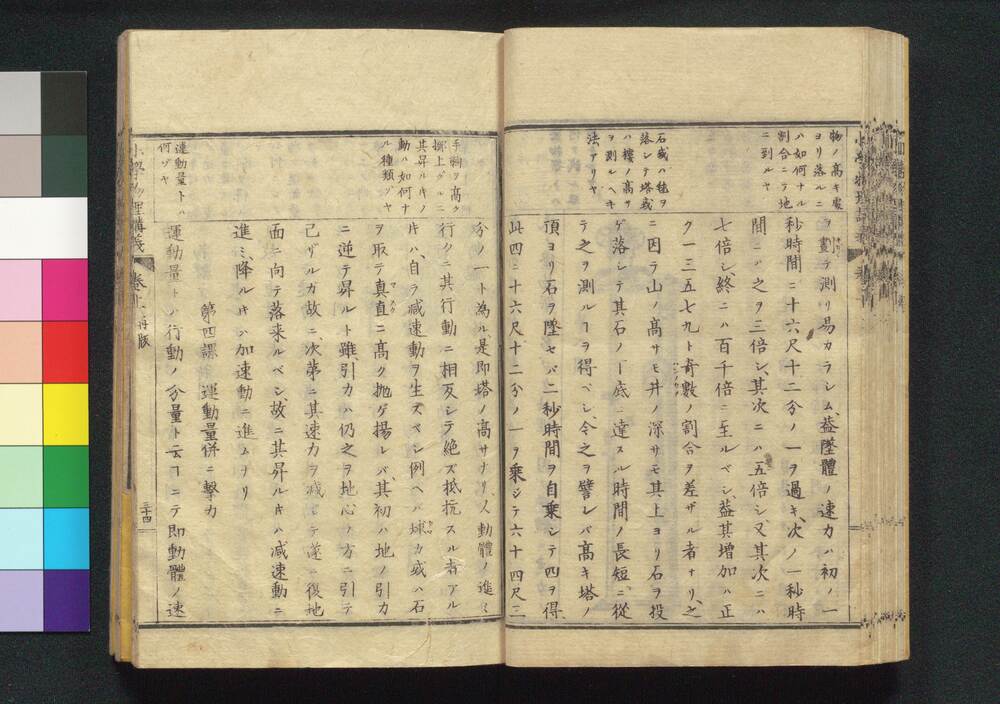 物ノ高キ處
ヨリ落ルニ
ハ如何ナル
割合ニテ地
ニ到ルヤ
石或ハ毬ヲ
落シテ塔或
ハ樓ノ高サ
ヲ測ルヘキ
法アリヤ
ヲ劃テ測リ易カラシム、葢墜體ノ速力ハ初ノ一
秒時間ニ十六尺十二分ノ一ヲ過キ、次ノ一秒時
間ニハ之ヲ三倍シ、其次ニハ五倍シ、又其次ニハ
七倍シ、終ニハ百千倍ニ至ルベシ、葢其増加ハ正
ク一三五七九ト奇數ノ割合ヲ差ザル者ナリ、之
ニ因テ山ノ高サモ井ノ深サモ其上ヨリ石ヲ投
ゲ落シテ其石ノ底ニ達スル時間ノ長短ニ從
テ之ヲ測ルヿヲ得ベシ、今之ヲ譬レバ高キ塔ノ
頂ヨリ石ヲ墜セバ二秒時間ヲ自乘シテ四ヲ得、
此四ニ十六尺十二分ノ一ヲ乘ジテ六十四尺三
手鞠ヲ高ク
擲上グルニ
其昇ルキノ
動ハ如何ナ
ル種類ゾヤ
運動量トハ
何ゾヤ
分ノ一ト為ル、是即塔ノ高サナリ、人動體ノ進ミ
行クニ其行動ニ相反シテ絶ズ抵抗スル者アル
キハ、自ラ減速動ヲ生ズベシ、例ヘバ球カ或ハ石
ヲ取テ真直ニ高ク抛ゲ揚レバ、其初ハ地ノ引力
ニ逆テ昇ルト雖、引力ハ仍之ヲ地心ノ方ニ引テ
已ザルガ故ニ、次第ニ其速力ヲ減ジテ遂ニ復地
面ニ向テ落来ルベシ、故ニ其昇ルキハ減速動ニ
進ミ、降ルキハ加速動ニ進ムナリ
第四課 運動量併ニ撃力
運動量トハ行動ノ分量ト云ヿニテ即動體ノ速
小學物理講義 卷 再版
三十四